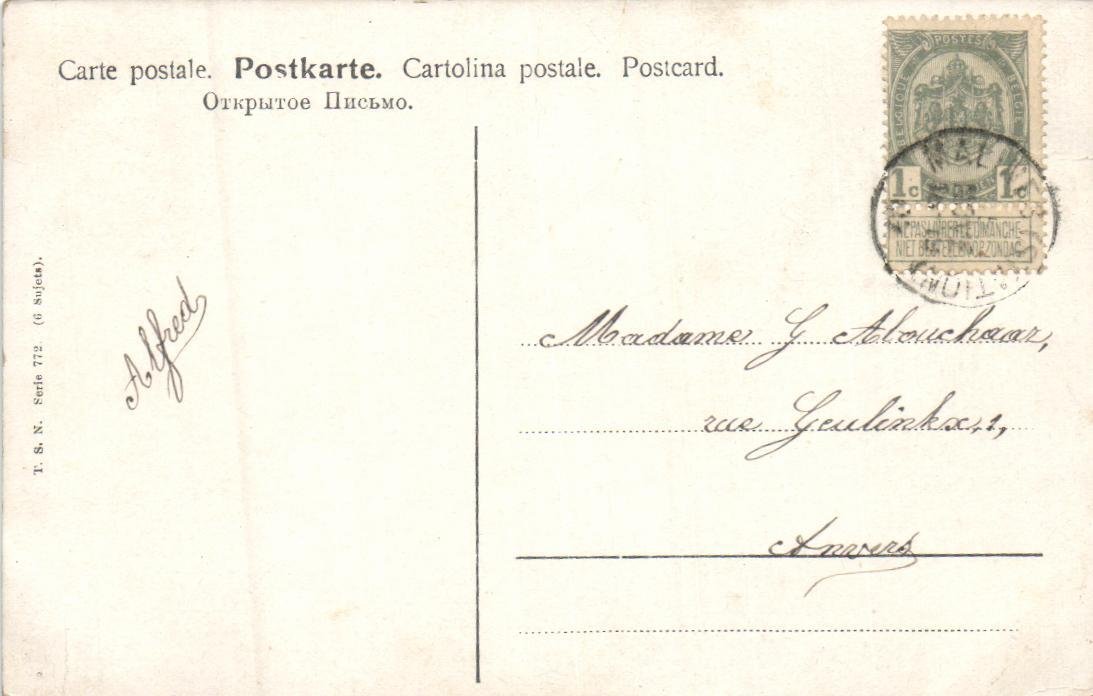 Carte postale. Postkarte. Cartolina postale. Postcard.
Открытое Письмо.
POSTES
BELGIQUE BELGIE
1c 1c
NE PAS LIVRER LE DIMANCHE
NIET BESTELLEN OP ZONDAG
T. S. N. Serie 772. (6 Sujets).
Alfred
Madame G Abouchaar,
rue Geulinkx, 1,
Anvers